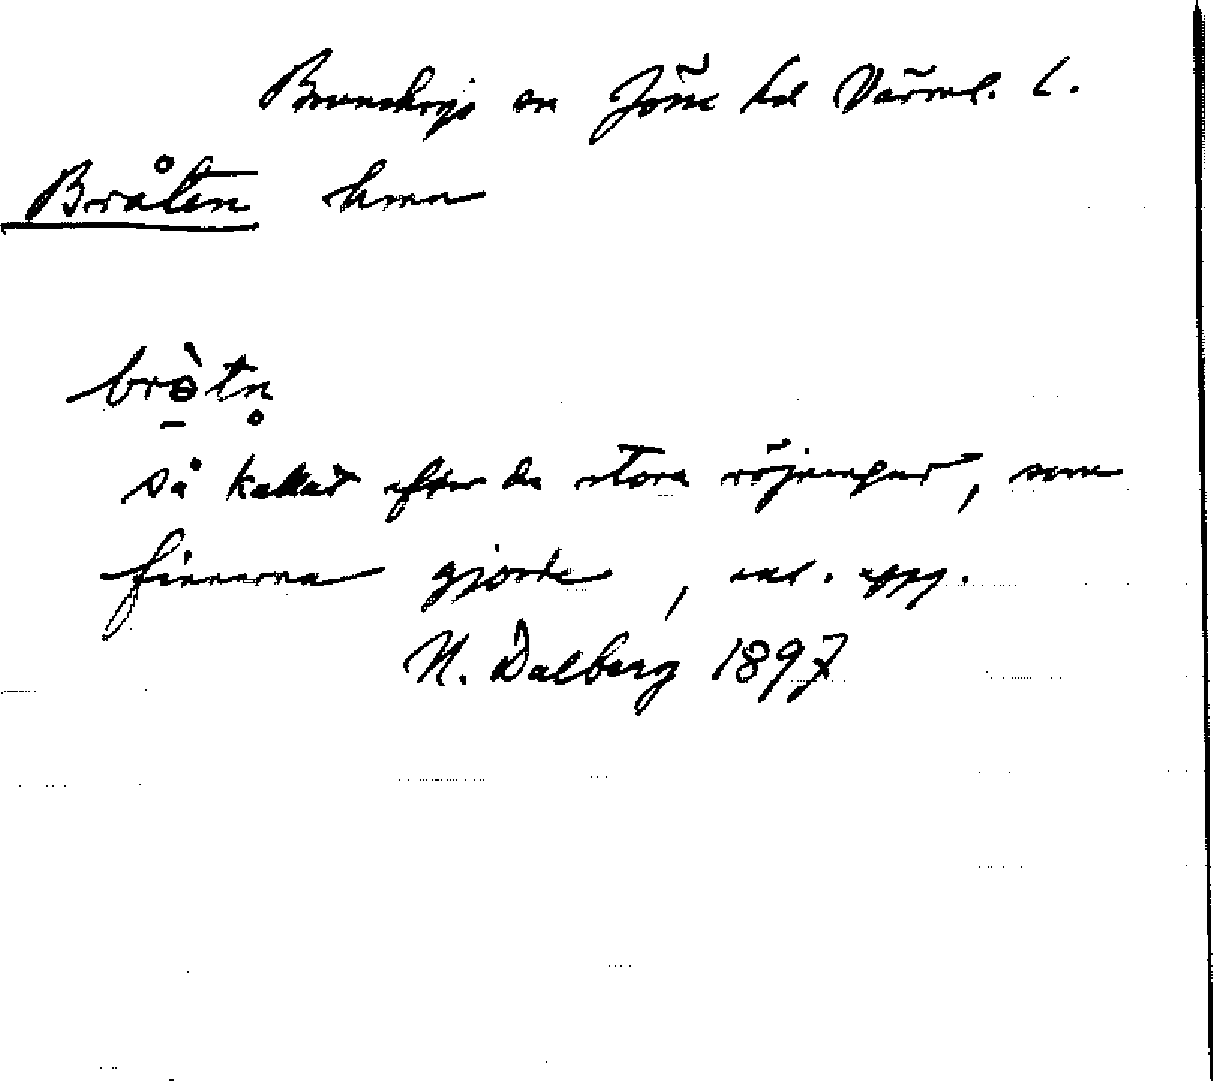 Brunskogs sn Jösse hd Värml. l.
Bråten hmn
brὸtn̥
så kallat efter de stora röjningar, som
finnarna gjorde, enl. uppg.
N. Dalberg 1897